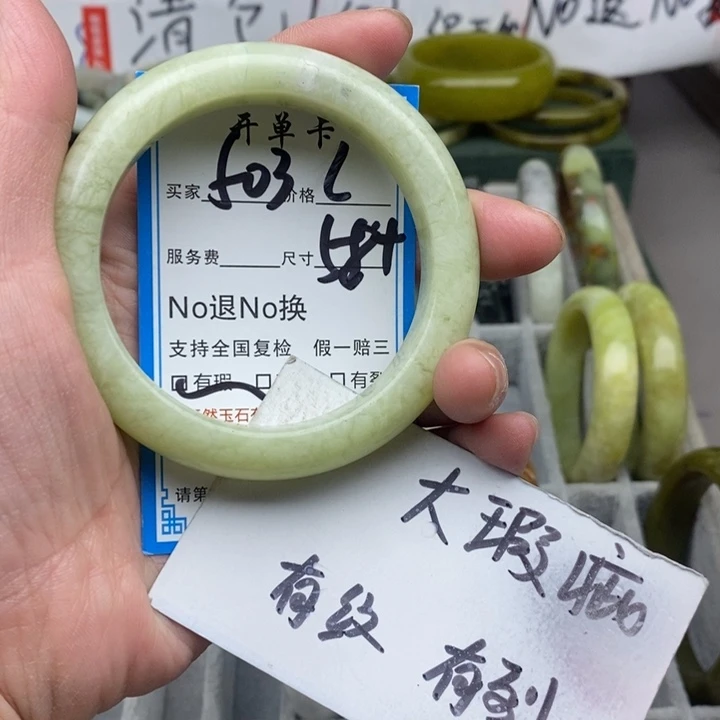 No退No
开单卡
买家 503 价格 L
服务费 尺寸 584
No退No换
支持全国复检 假一赔三
有瑕 有裂
然玉石
请第
大瑕疵
有纹 有列